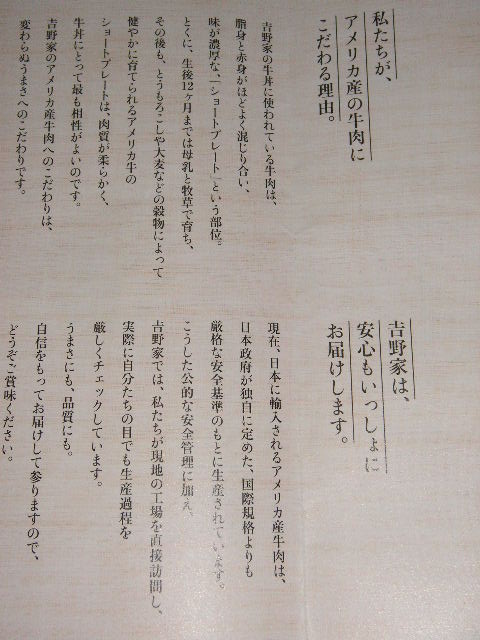 私たちが、
アメリカ産の牛肉に
こだわる理由。
吉野家の牛丼に使われている牛肉は、
脂身と赤身がほどよく混じり合い、
味が濃厚な、「ショートプレート」という部位。
とくに、生後12ヶ月までは母乳と牧草で育ち、
その後も、とうもろこしや大麦などの穀物によって
健やかに育てられるアメリカ牛の
ショートプレートは、肉質が柔らかく、
牛丼にとって最も相性がよいのです。
吉野家のアメリカ産牛肉へのこだわりは、
変わらぬうまさへのこだわりです。
吉野家は、
安心もいっしょに
お届けします。
現在、日本に輸入されるアメリカ産牛肉は、
日本政府が独自に定めた、国際規格よりも
厳格な安全基準のもとに生産されています。
こうした公的な安全管理に加え、
吉野家では、私たちが現地の工場を直接訪問し、
実際に自分たちの目でも生産過程を
厳しくチェックしています。
うまさにも、品質にも。
自信をもってお届けして参りますので、
どうぞご賞味ください。